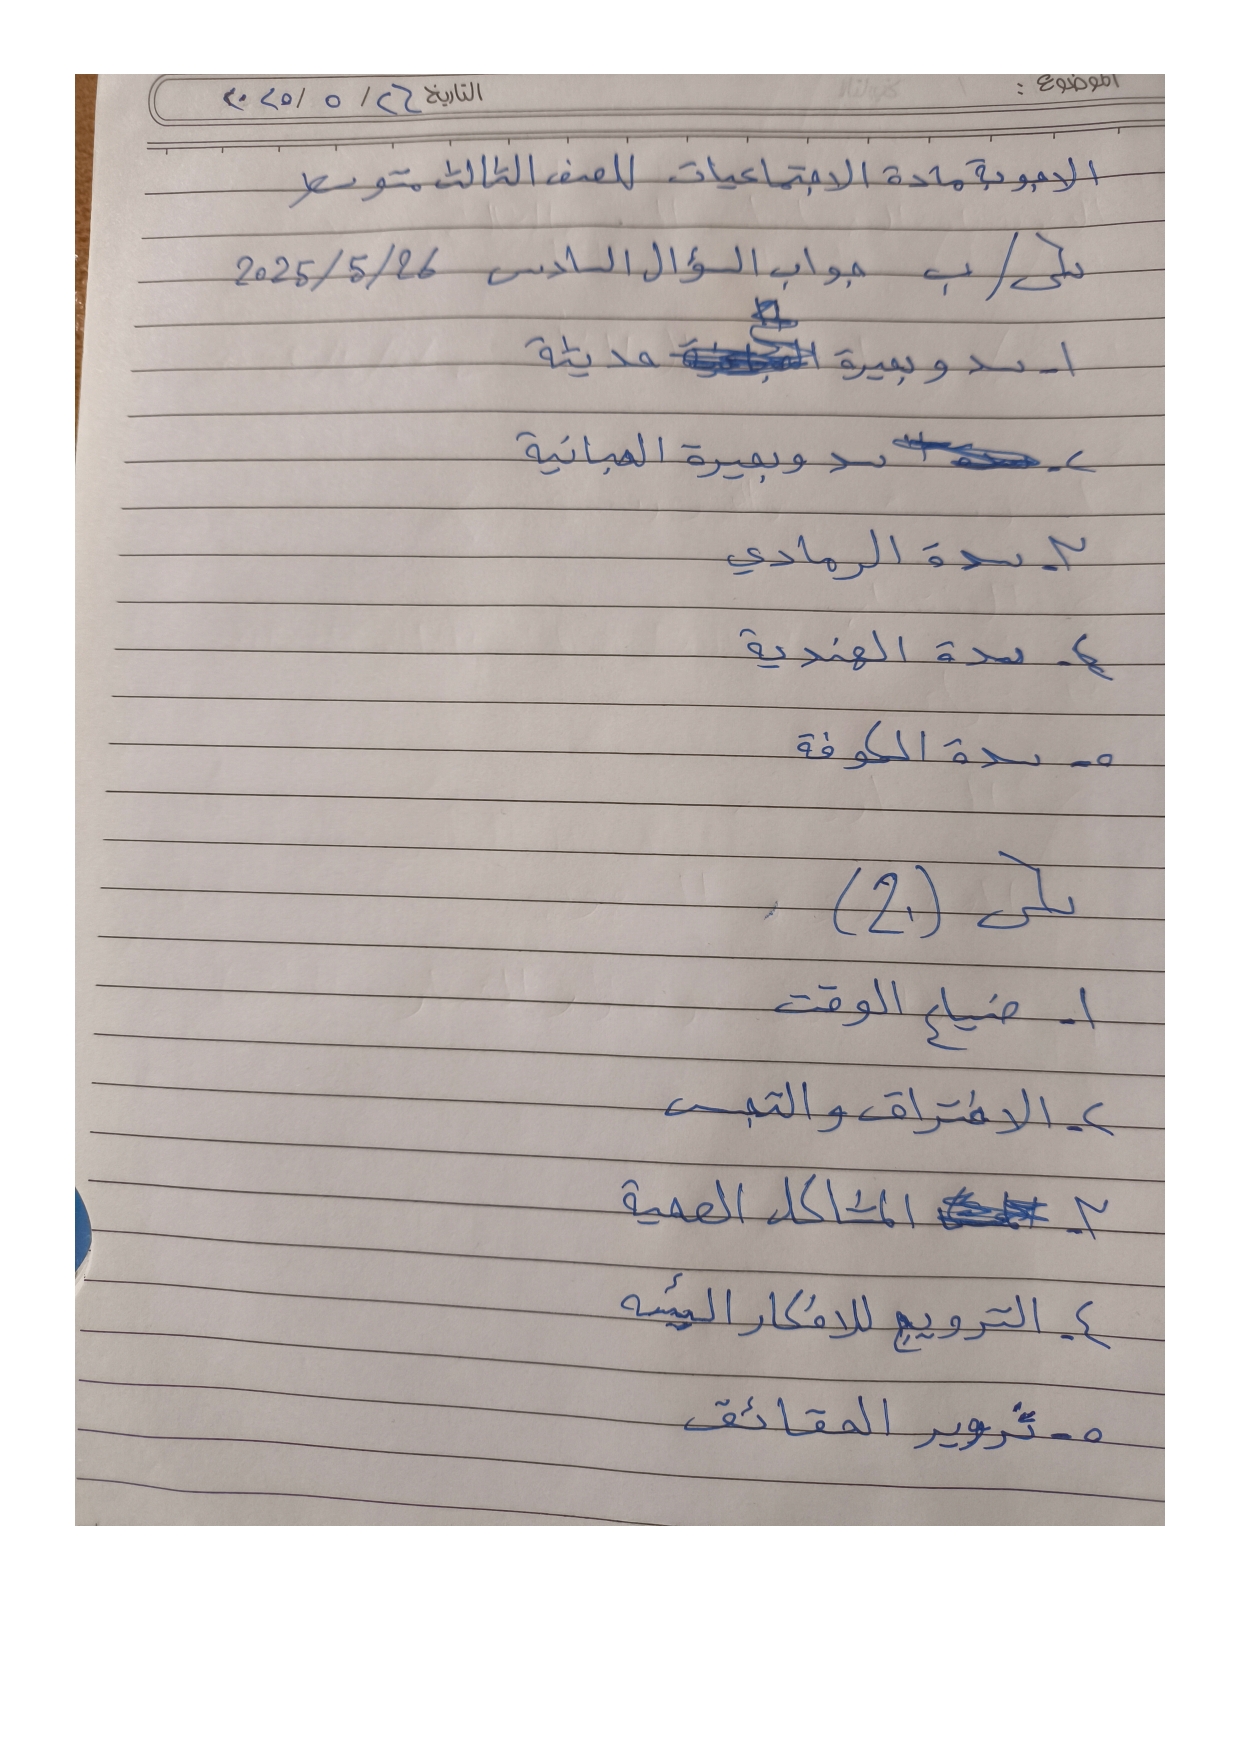 الموضوع :
التاريخ ٢٦ / ٥ / ٢٠٢٥
الاجوبة مادة الاجتماعيات للصف الثالث متوسط
س٦/ ب جواب السؤال السادس 2025/5/26
١- سد وبحيرة حديثة
٢- سد وبحيرة الحبانية
٣- سدة الرمادي
٤- سدة الهندية
٥- سدة الكوفة
(2)
١- ضياع الوقت
٢- الاختراق والتجسس
٣- المشاكل الصحية
٤- الترويج للافكار السيئه
٥- تزوير الحقائق